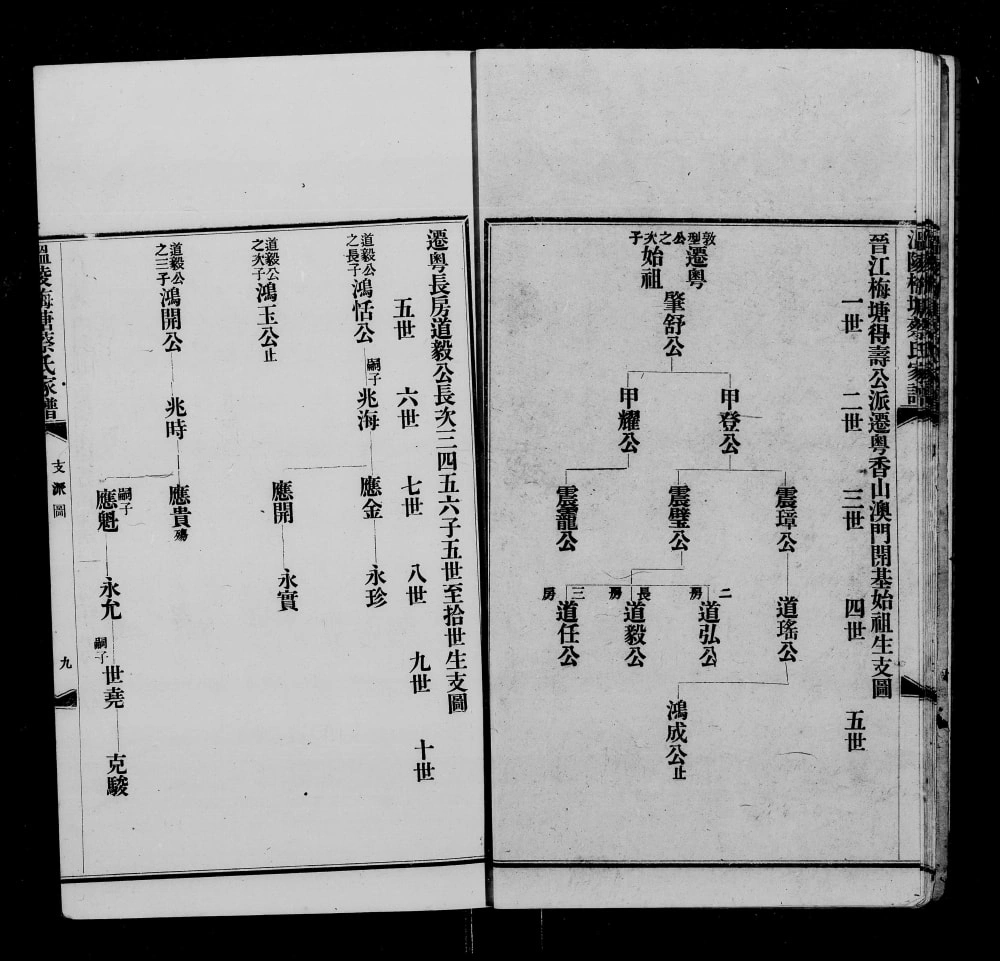 溫陵梅塘蔡氏家譜
晉江梅塘得壽公派遷粵香山澳門開基始祖生支圖
一世 二世 三世 四世 五世
敦型公之次子
遷粵始祖
肇舒公
甲登公
甲耀公
震璋公
震璧公
震龍公
道瑤公
二房 道弘公
長房 道毅公
三房 道任公
鴻成公止
遷粵長房道毅公長次三四五六子五世至拾世生支圖
五世 六世 七世 八世 九世 十世
道毅公之長子 鴻恬公 嗣子 兆海 應金 永珍
應開 永實
道毅公之次子 鴻玉公止
道毅公之三子 鴻開公 兆時 應貴殤
嗣子 應魁 永允 嗣子 世堯 克駿
溫陵梅塘蔡氏家譜 支派圖 九